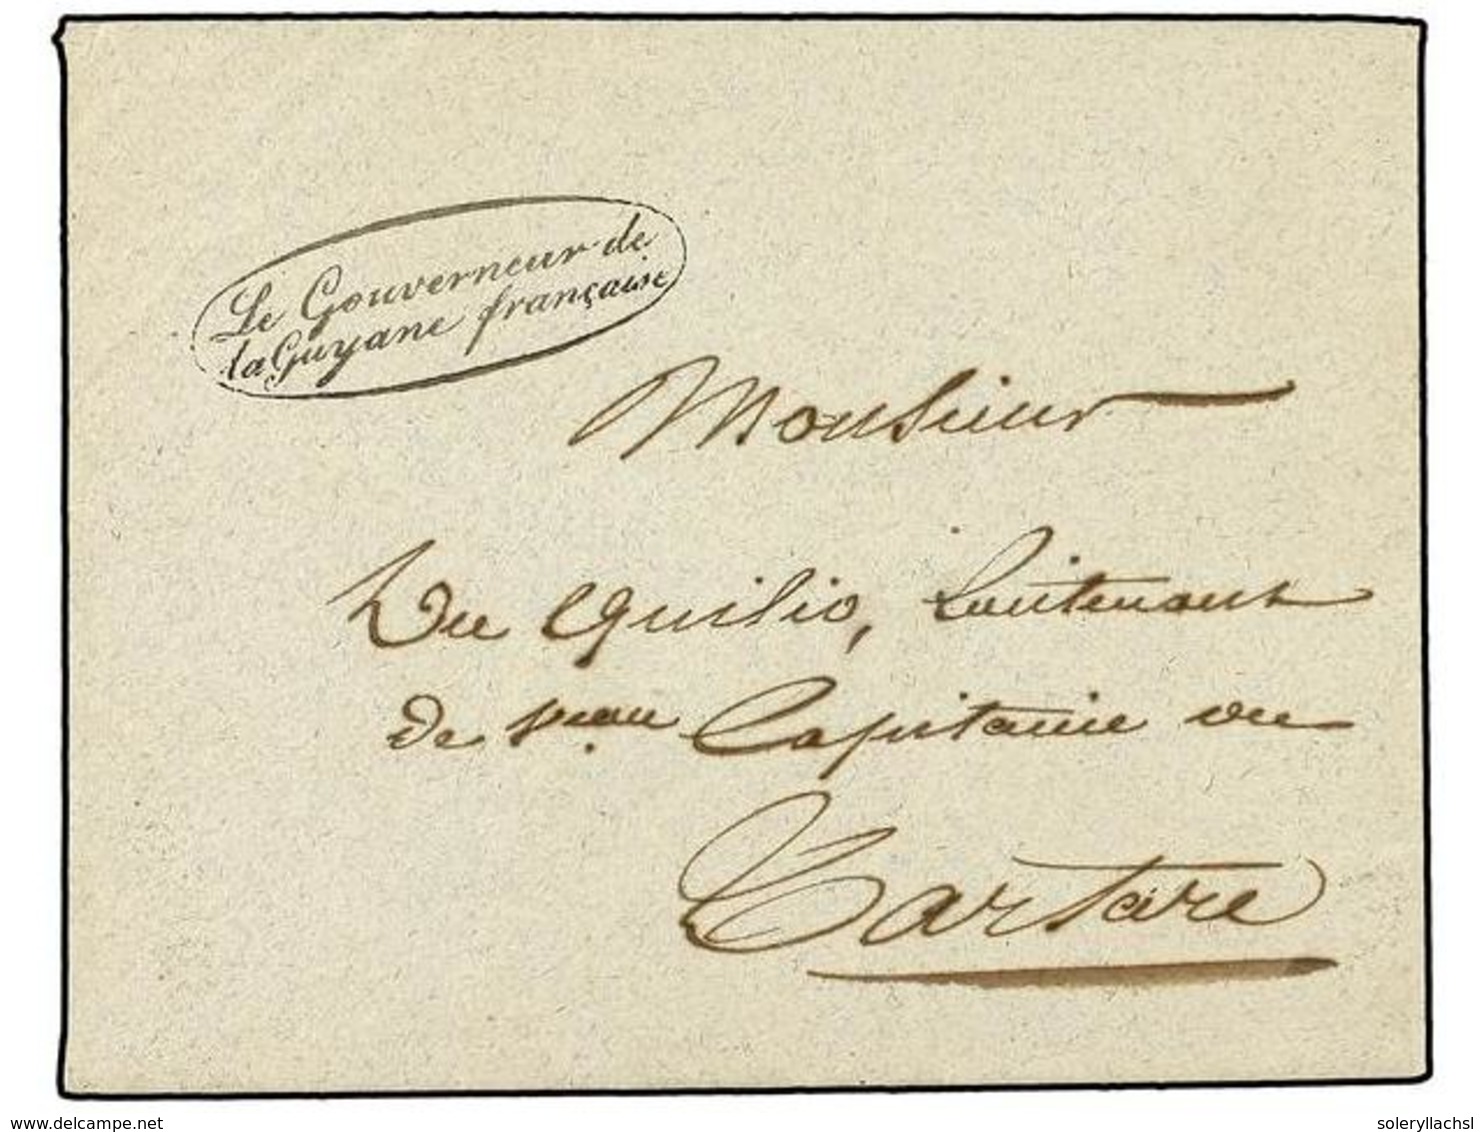 Le Gouverneur de
la Guyane française
Monsieur
Du Quilio, Lieutenant
de Vau Capitaine du
Tartare
delcampe.net
soleryllachsl